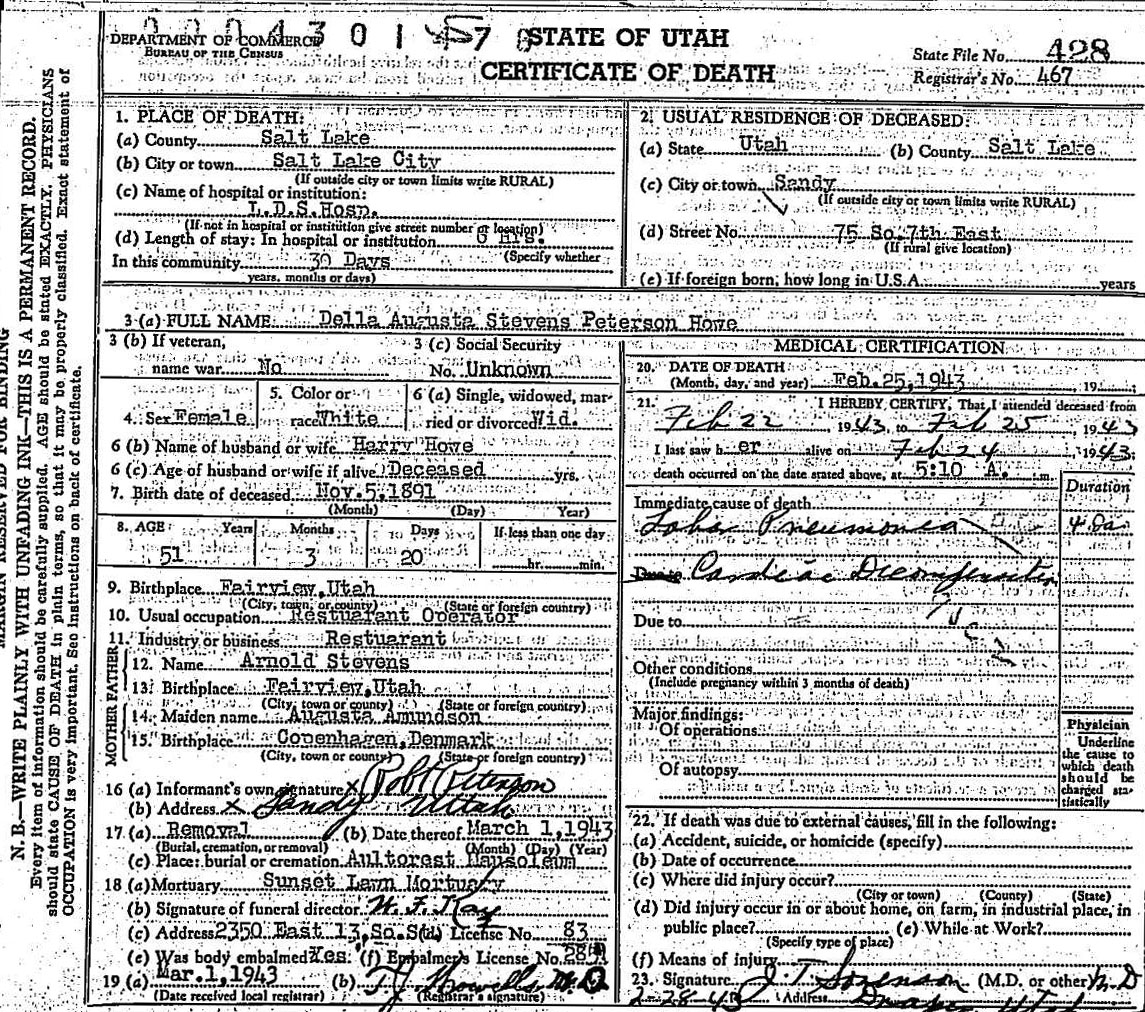 DEPARTMENT OF COMMERCE
BUREAU OF THE CENSUS
STATE OF UTAH
CERTIFICATE OF DEATH
State File No. 428
Registrar's No. 467
MARGIN RESERVED FOR BINDING
N. B.—WRITE PLAINLY WITH UNFADING INK—THIS IS A PERMANENT RECORD.
Every item of information should be carefully supplied. AGE should be stated EXACTLY. PHYSICIANS
should state CAUSE OF DEATH in plain terms, so that it may be properly classified. Exact statement of
OCCUPATION is very important. See instructions on back of certificate.
1. PLACE OF DEATH:
(a) County Salt Lake
(b) City or town Salt Lake City
(If outside city or town limits write RURAL)
(c) Name of hospital or institution:
L.D.S.Hosp.
(If not in hospital or institution give street number or location)
(d) Length of stay: In hospital or institution 6 Hrs.
(Specify whether
In this community 30 Days
years, months or days)
2. USUAL RESIDENCE OF DECEASED:
(a) State Utah (b) County Salt Lake
(c) City or town Sandy
(If outside city or town limits write RURAL)
(d) Street No. 75 So. 7th East
(If rural give location)
(e) If foreign born, how long in U.S.A. years
3 (a) FULL NAME Della Augusta Stevens Peterson Howe
3 (b) If veteran,
name war No
3 (c) Social Security
No. Unknown
4. Sex Female
5. Color or
race White
6 (a) Single, widowed, mar-
ried or divorced Wid.
6 (b) Name of husband or wife Harry Howe
6 (c) Age of husband or wife if alive Deceased yrs.
7. Birth date of deceased Nov.5,1891
(Month) (Day) Year)
8. AGE: Years Months Days If less than one day
51 3 20 hr. min.
9. Birthplace Fairview,Utah
(City, town, or county) (State or foreign country)
10. Usual occupation Restuarant Operator
11. Industry or business Restuarant
FATHER
12. Name Arnold Stevens
13. Birthplace Fairview,Utah
(City, town or county) (State or foreign country)
MOTHER
14. Maiden name Augusta Amundson
15. Birthplace Copenhagen,Denmark
(City, town or county) (State or foreign country)
16 (a) Informant's own signature x Robt Peterson
(b) Address x Sandy Uttah
17 (a) Removal (b) Date thereof March 1,1943
(Burial, cremation, or removal) (Month) (Day) (Year)
(c) Place: burial or cremation Aultorest Mausoleim
18 (a) Mortuary Sunset Lawn Mortuary
(b) Signature of funeral director W. F. Kay
(c) Address 2350 East 13,So.S (d) License No. 83
(e) Was body embalmed Yes (f) Embalmer's License No.
19 (a) Mar.1,1943 (b) T. J. Howells M.D
(Date received local registrar) (Registrar's signature)
MEDICAL CERTIFICATION
20. DATE OF DEATH
(Month, day, and year) Feb.25,1943 , 19
21. I HEREBY CERTIFY, That I attended deceased from
Feb 22 1943, to Feb 25 , 1943
I last saw h er alive on Feb 24 , 1943;
death occurred on the date stated above, at 5:10 A. m.
Duration
Immediate cause of death
Lobar Pneumonia 4 Da
Due to Cardiac Decompensation
Due to
Other conditions
(Include pregnancy within 3 months of death)
Major findings:
Of operations
Of autopsy
Physician
Underline
the cause to
which death
should be
charged sta-
tistically
22. If death was due to external causes, fill in the following:
(a) Accident, suicide, or homicide (specify)
(b) Date of occurrence
(c) Where did injury occur?
(City or town) (County) (State)
(d) Did injury occur in or about home, on farm, in industrial place, in
public place? (e) While at Work?
(Specify type of place)
(f) Means of injury
23. Signature J. T. Sorenson (M.D. or other) M.D
2-28-43 Address Draper Utah